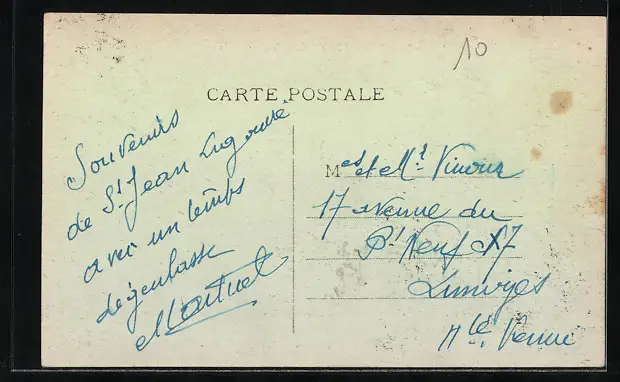 10
CARTE POSTALE
Souvenirs
de St Jean Ligoure
avec un temps
dégeulasse
Martinet
Mes et Mr Vimour
17 avenue du
Pt Neuf N7
Limoges
Hte Vienne